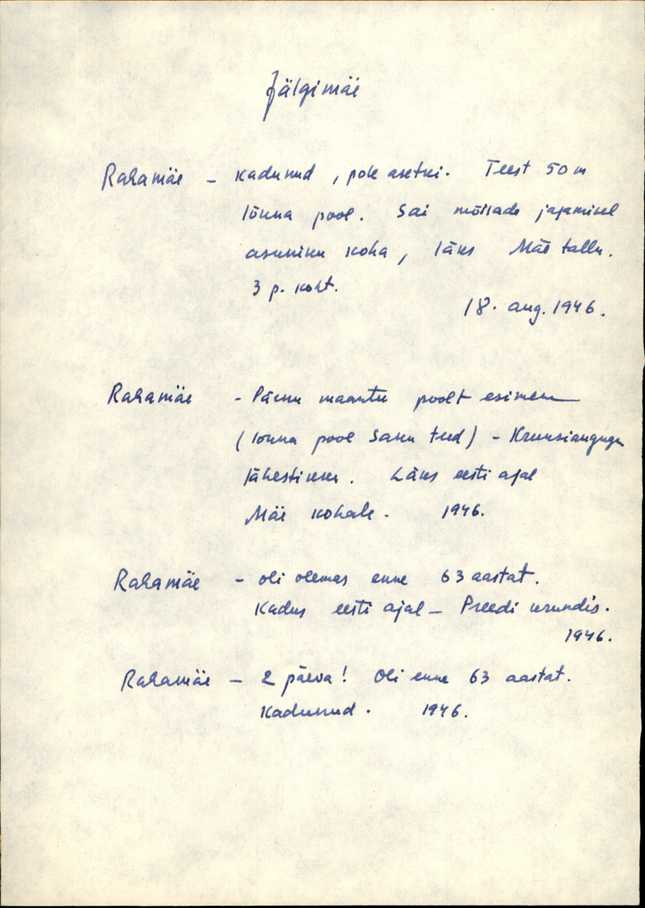 Jälgimäe
Rahamäe - kadunud, pole asetki. Teest 50 m
lõuna pool. Sai mõisade jagamisel
asuniku koha, läks Mäe tallu.
3 p. koht.
18. aug. 1946.
Rahamäe - Pärnu maantee poolt esimene
(lõuna pool Saku teed) - Kruusiaugugu
lähestikku. Läks eesti ajal
Mäe kohale. 1946.
Rahamäe - oli olemas enne 63 aastat.
Kadus eesti ajal - Preedi
1946.
Rahamäe - 2 päeva! Oli enne 63 aastat.
Kadunud. 1946.